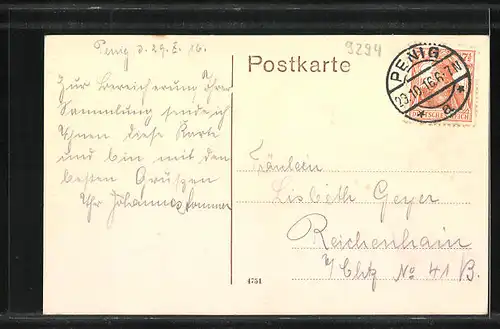 Penig d. 29. 8. 16.
9294
Postkarte
PENIG
23.10.16.6-7N
* a *
7½
DEUTSCHES REICH
Zur Bereicherung Ihrer
Sammlung sende ich
Ihnen diese Karte
und bin mit den
besten Grüßen
Ihr Johannes
Fräulein
Lisbeth Geyer
Reichenhain
b/Chtz No 41 B.
4751